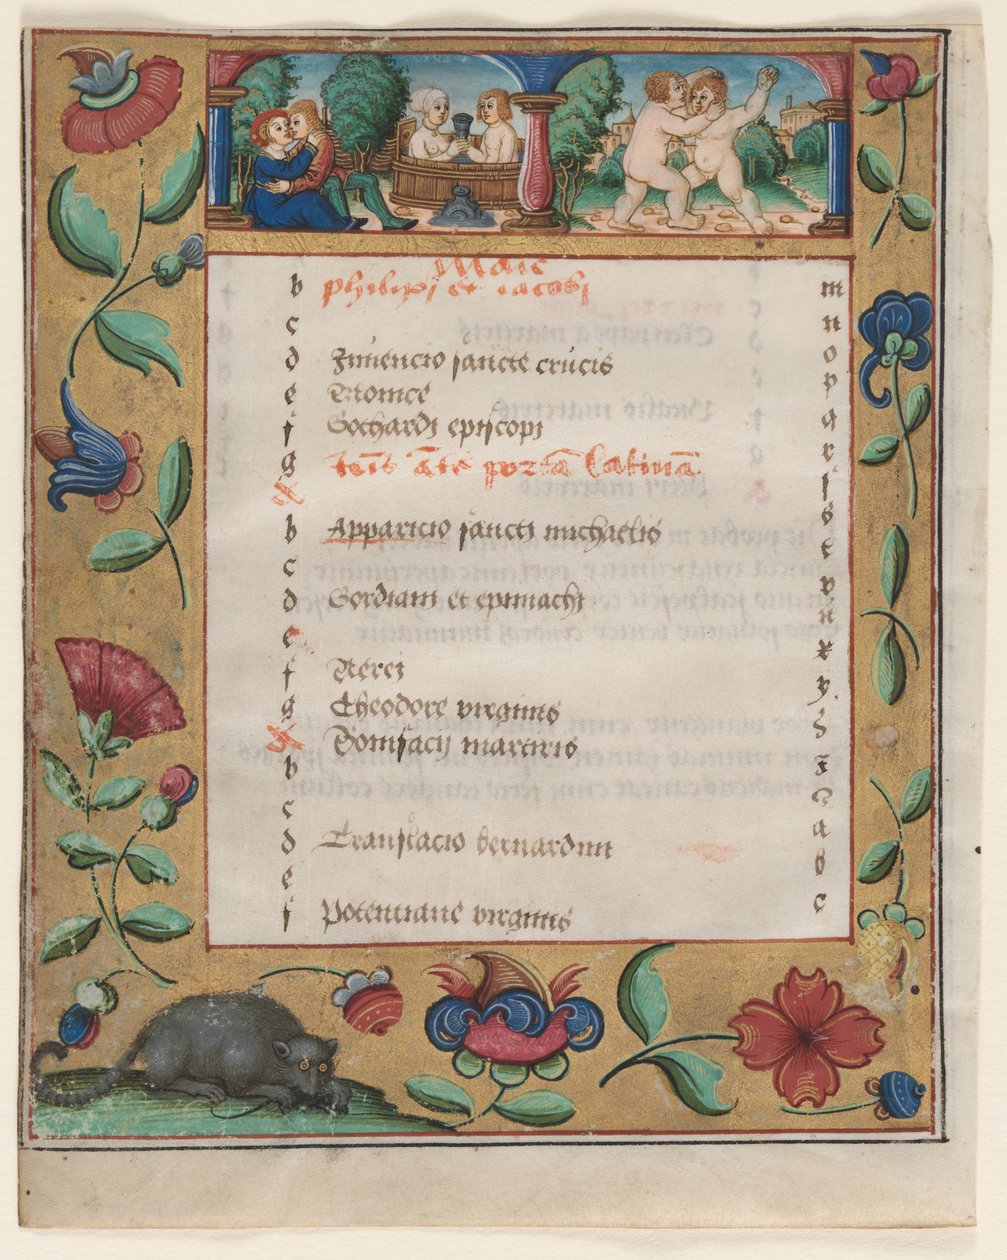 Maie
b philippi et iacobi m
c n
d Inuencio sancte crucis o
e p
f Gothardi episcopi q
g Iohis ante portā latinā r
A s
b Apparicio sancti michaelis s
c t
d Gordiani et epimachi v
e x
f Nerei
g Theodore virginis y
A Bonifacij martiris
b
c
d Translacio bernardini a
e b
f Potentiane virginis c